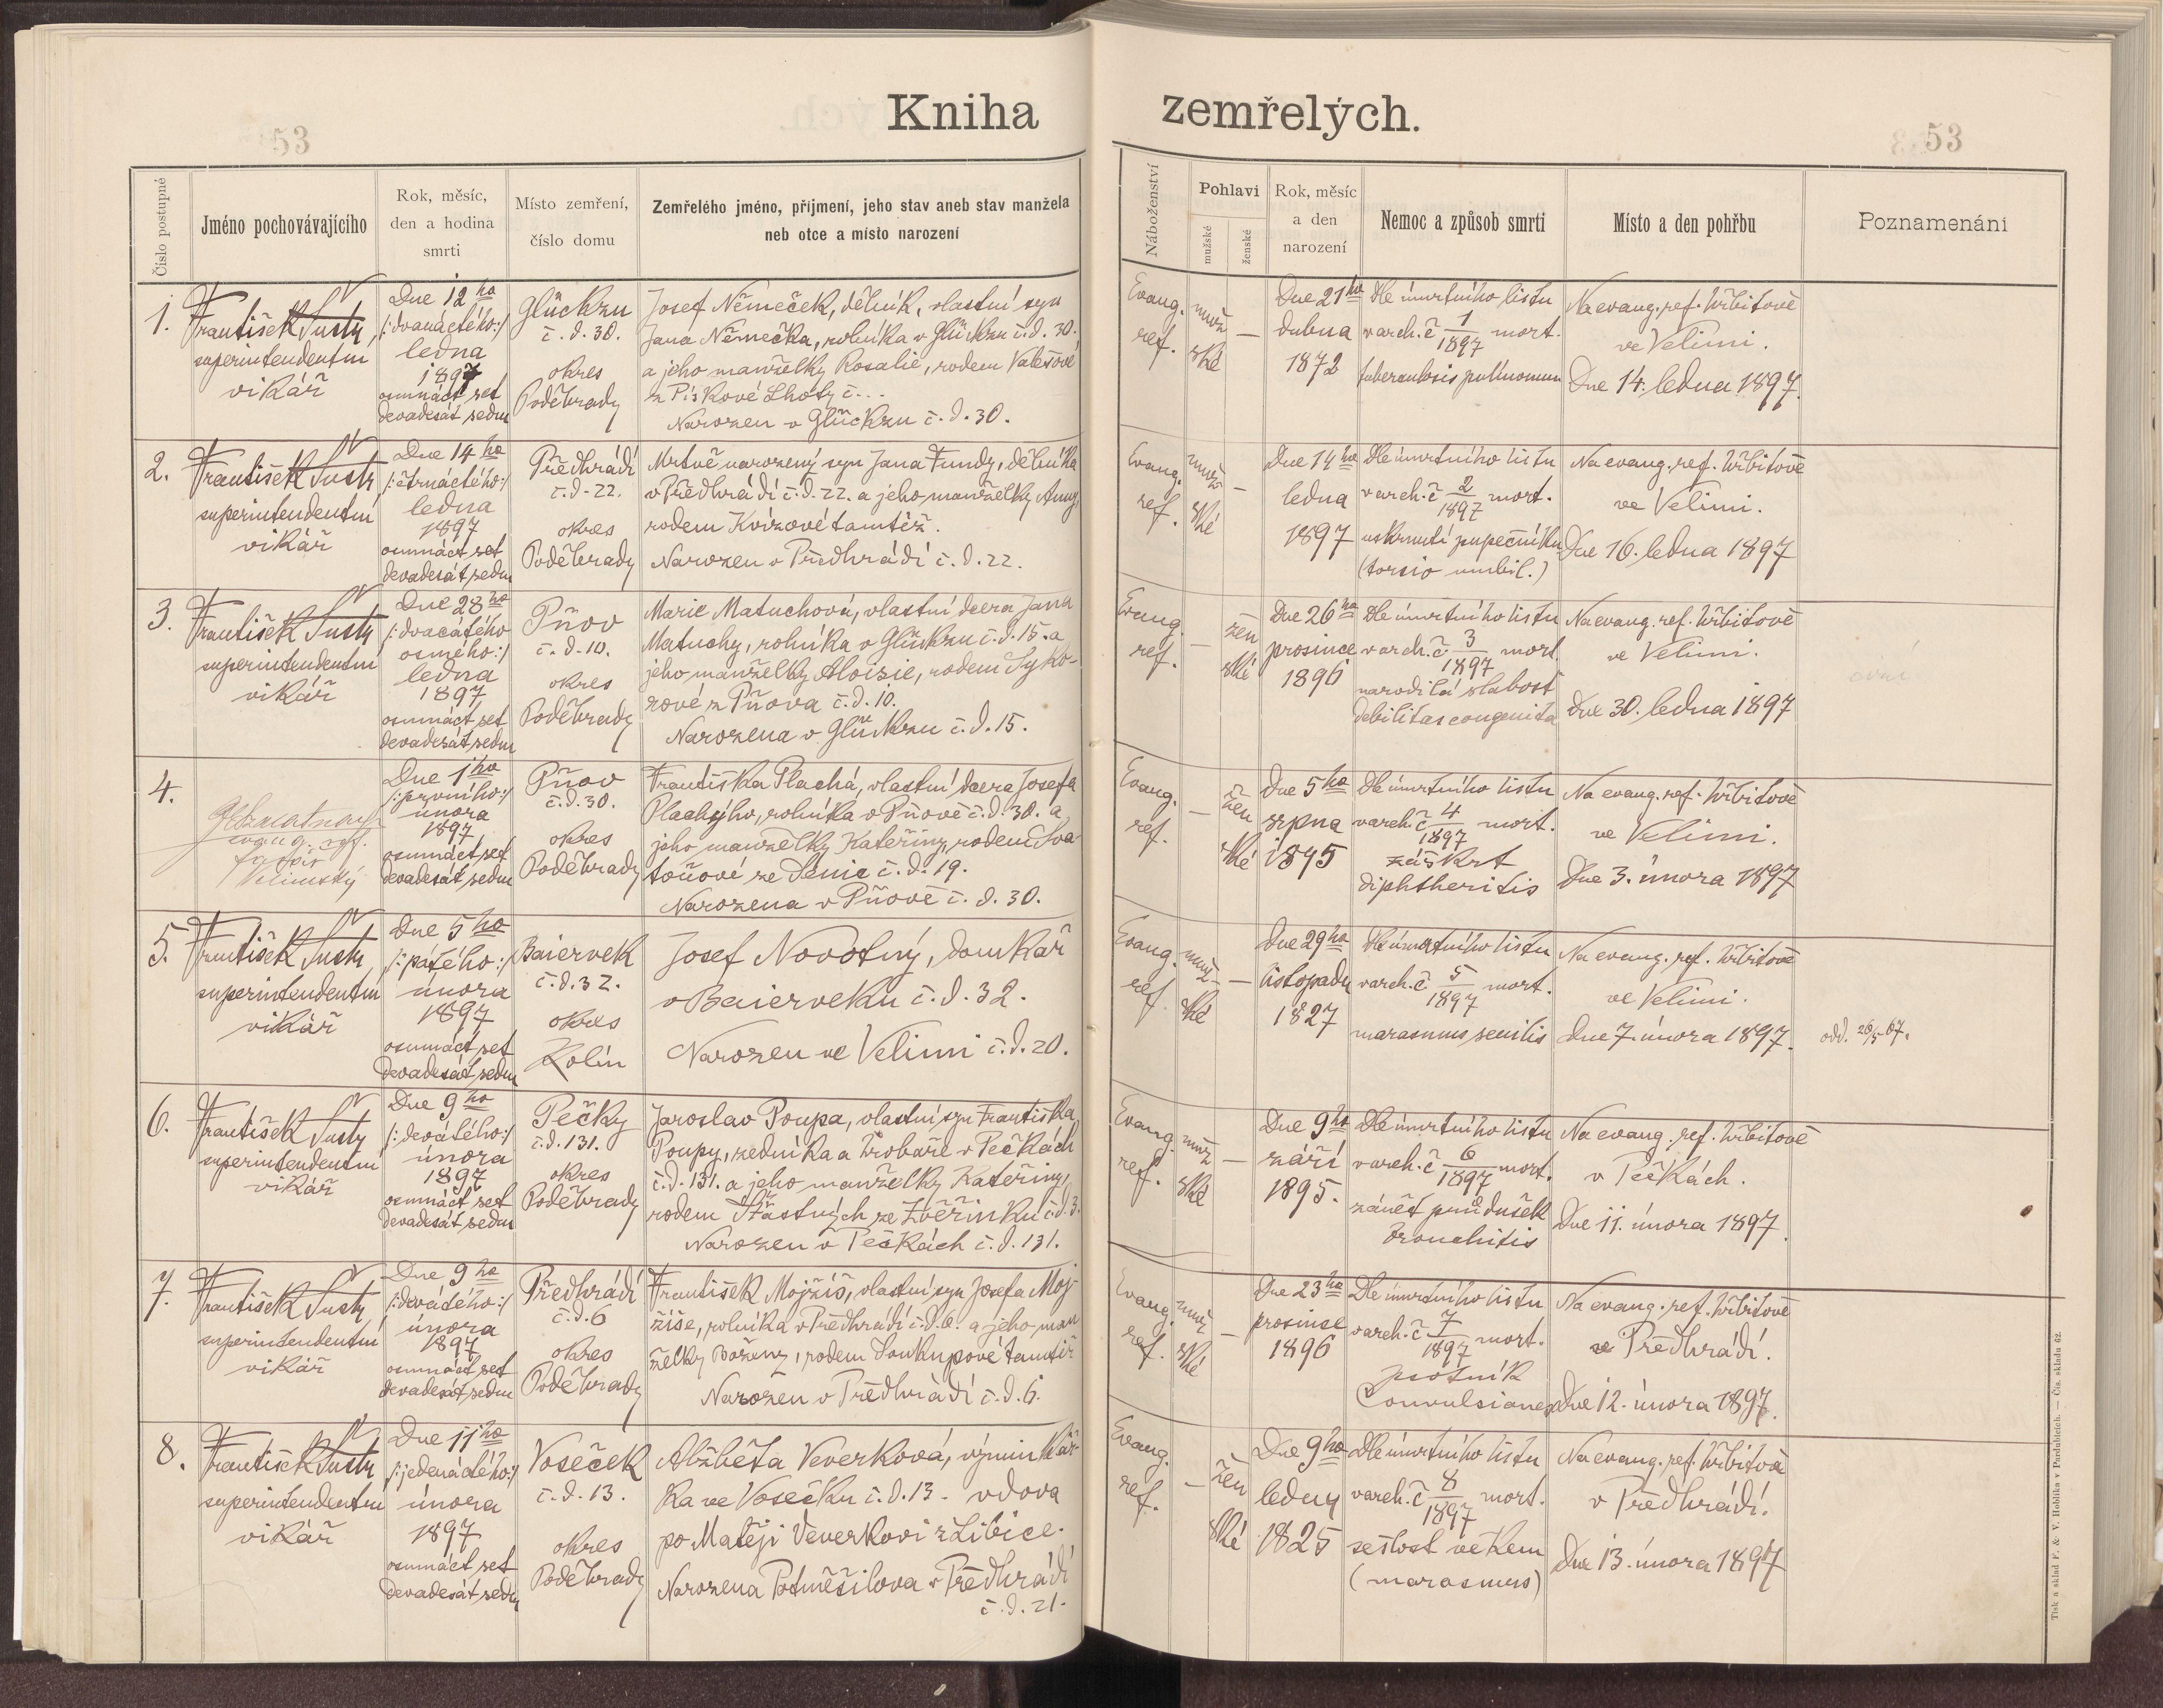 Kniha zemřelých.
53
53
Číslo postupné
Jméno pochovávajícího
Rok, měsíc,
den a hodina
smrti
Místo zemření,
číslo domu
Zemřelého jméno, příjmení, jeho stav aneb stav manžela
neb otce a místo narození
Náboženství
Pohlavi
mužské
ženské
Rok, měsíc
a den
narození
Nemoc a způsob smrti
Místo a den pohřbu
Poznamenání
1.
František Šustr,
superintendentní
vikář
Dne 12ho
/:dvanáctého:/
ledna
1897
osmnáct set
devadesát sedm
Glückzu
č. d. 30.
okres
Poděbrady
Josef Němeček, dělník, vlastní syn
Jana Němečka, rolníka v Glückzu č. d. 30.
a jeho manželky Rosalie, rodem Valešové
z Pískové Lhoty č...
Narozen v Glückzu č. d. 30.
Evang.
ref.
muž
ské
—
Dne 21ho
dubna
1872
Dle úmrtního listu
v arch. č 1/1897 mort.
tuberculosis pulmonum
Na evang. ref. hřbitově
ve Velimi.
Dne 14. ledna 1897.
2.
František Šustr
superintendentní
vikář
Dne 14ho
/:čtrnáctého:/
ledna
1897
osmnáct set
devadesát sedm
Předhrádí
č. d. 22.
okres
Poděbrady
Mrtvě narozený syn Jana Fundy, dělníka
v Předhrádí č. d. 22. a jeho manželky Anny,
rodem Kvízové tamtéž.
Narozen v Předhrádí č. d. 22.
Evang.
ref.
muž
ské
—
Dne 14ho
ledna
1897
Dle úmrtního listu
v arch. č 2/1897 mort.
uskrnutí pupečníku
(torsio umbil.)
Na evang. ref. hřbitově
ve Velimi.
Dne 16. ledna 1897
3.
František Šustr
superintendentní
vikář
Dne 28ho
/:dvacátého
osmého:/
ledna
1897
osmnáct set
devadesát sedm
Pňov
č. d. 10.
okres
Poděbrady
Marie Matuchová, vlastní dcera Jana
Matuchy, rolníka v Glückzu č. d. 15. a
jeho manželky Aloisie, rodem Syko-
rové z Pňova č. d. 10.
Narozena v Glückzu č. d. 15.
Evang.
ref.
—
žen
ské
Dne 26ho
prosince
1896
Dle úmrtního listu
v arch. č 3/1897 mort.
narodilá slabost
debilitas congenita
Na evang. ref. hřbitově
ve Velimi.
Dne 30. ledna 1897
4.
evang. ref.
farář
Velimský
Dne 1ho
/:prvního:/
února
1897
osmnáct set
devadesát sedm
Pňov
č. d. 30.
okres
Poděbrady
Františka Plachá, vlastní dcera Josefa
Plachýho, rolníka v Pňově č. d. 30. a
jeho manželky Kateřiny, rodem Sva-
toňové ze Senic č. d. 19.
Narozena v Pňově č. d. 30.
Evang.
ref.
—
žen
ské
Dne 5ho
srpna
1895
Dle úmrtního listu
v arch. č 4/1897 mort.
záškrt
diphtheritis
Na evang. ref. hřbitově
ve Velimi.
Dne 3. února 1897
5.
František Šustr,
superintendentní
vikář
Dne 5ho
/:pátého:/
února
1897
osmnáct set
devadesát sedm
Baiervek
č. d. 32.
okres
Kolín
Josef Novotný, domkář
v Baierveku č. d. 32.
Narozen ve Velimi č. d. 20.
Evang.
ref.
muž-
ské
—
Dne 29ho
listopadu
1827
Dle úmrtního listu
v arch. č 5/1897 mort.
marasmus senilis
Na evang. ref. hřbitově
ve Velimi.
Dne 7. února 1897.
odd. 26/5 67.
6.
František Šustr
superintendentní
vikář
Dne 9ho
/:devátého:/
února
1897
osmnáct set
devadesát sedm
Pečky
č. d. 131.
okres
Poděbrady
Jaroslav Poupa, vlastní syn Františka
Poupy, zedníka a hrobaře v Pečkách
č. d. 131. a jeho manželky Kateřiny,
rodem Šťastných ze Zvěřínku č. d. 3.
Narozen v Pečkách č. d. 131.
Evang.
ref.
muž
ské
—
Dne 9ho
září
1895.
Dle úmrtního listu
v arch. č 6/1897 mort.
zánět průdušek
bronchitis
Na evang. ref. hřbitově
v Pečkách.
Dne 11. února 1897.
7.
František Šustr
superintendentní
vikář
Dne 9ho
/:devátého:/
února
1897
osmnáct set
devadesát sedm
Předhrádí
č. d. 6
okres
Poděbrady
František Mojžíš, vlastní syn Josefa Moj-
žíše, rolníka v Předhrádí č. d. 6. a jeho man
želky Boženy, rodem Soukupové tamtéž
Narozen v Předhrádí č. d. 6.
Evang.
ref.
muž
ské
—
Dne 23ho
prosince
1896
Dle úmrtního listu
v arch. č 7/1897 mort.
psotník
Convulsiones
Na evang. ref. hřbitově
ve Předhrádí.
Dne 12. února 1897.
8.
František Šustr
superintendentní
vikář
Dne 11ho
/:jedenáctého:/
února
1897
osmnáct set
devadesát sedm
Voseček
č. d. 13.
okres
Poděbrady
Alžběta Veverková, výminkář-
ka ve Vosečku č. d. 13. vdova
po Matěji Veverkovi z Libice.
Narozena Potměšilova v Předhrádí
č. d. 21.
Evang.
ref.
—
žen
ské
Dne 9ho
ledny
1825
Dle úmrtního listu
v arch. č 8/1897 mort.
sešlost věkem
(marasmus)
Na evang. ref. hřbitově
v Předhrádí.
Dne 13. února 1897
Tisk a sklad F. & V. Hoblíka v Pardubicích. — Čís. skladu 62.